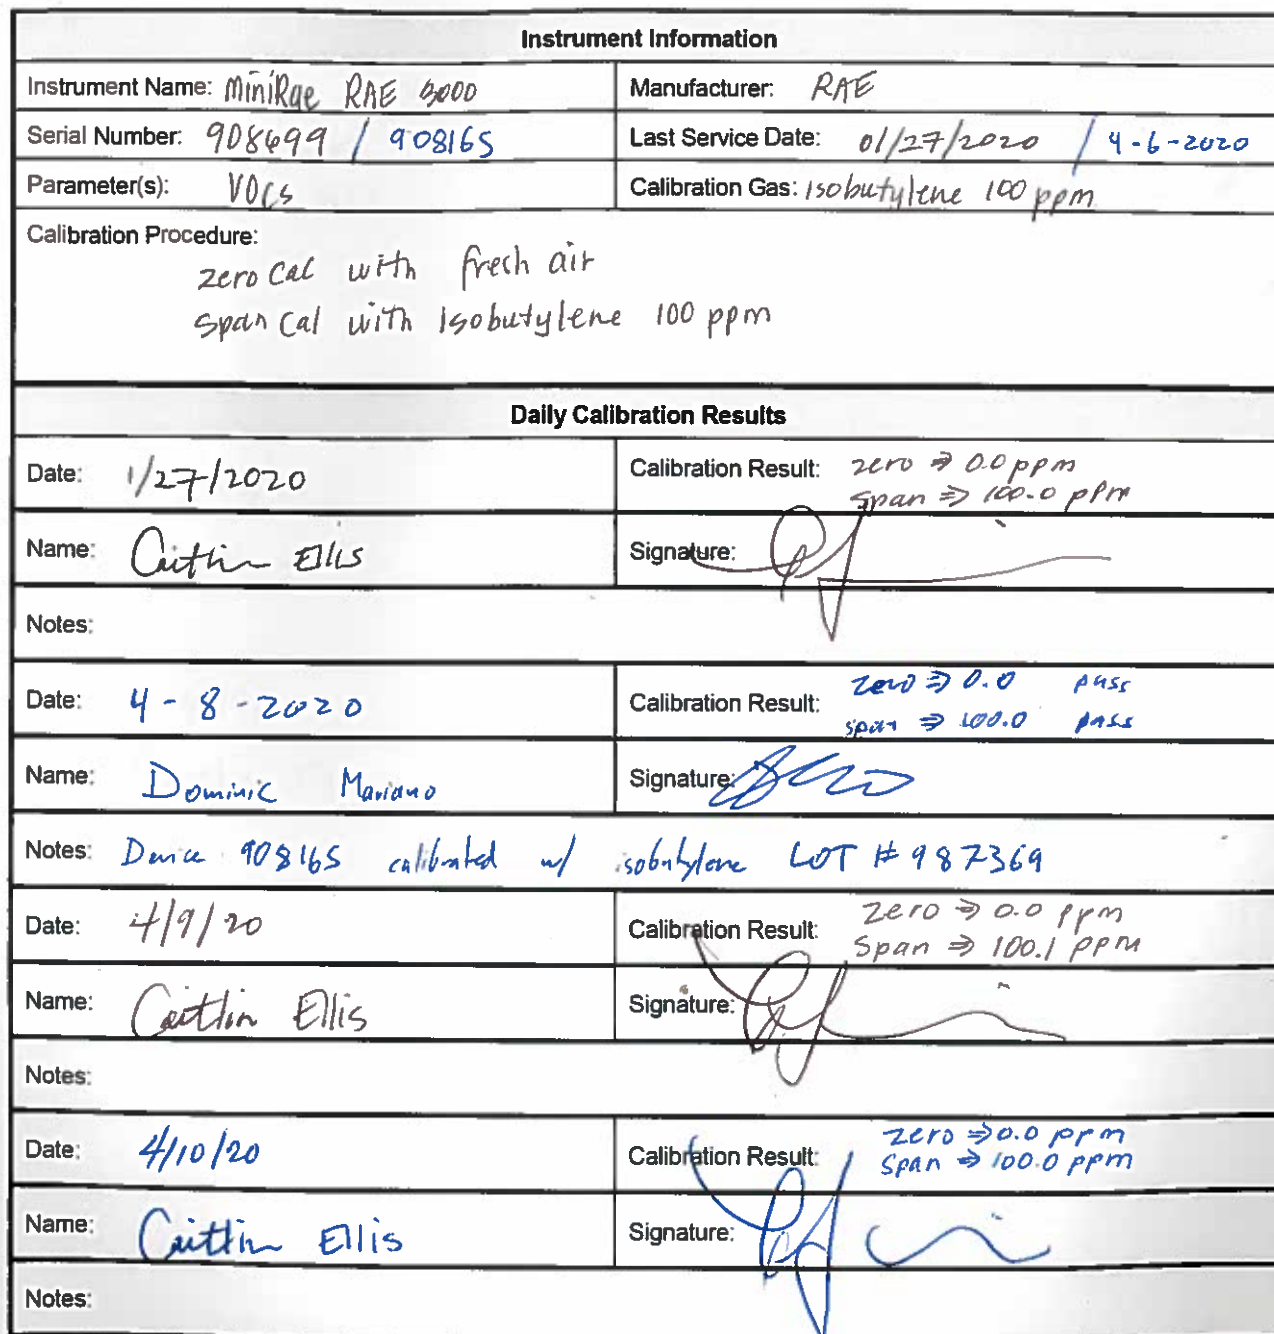 Instrument Information
Instrument Name: MiniRae RAE 3000 Manufacturer: RAE
Serial Number: 908699 / 908165 Last Service Date: 01/27/2020 / 4-6-2020
Parameter(s): VOCs Calibration Gas: Isobutylene 100 ppm
Calibration Procedure:
zero cal with fresh air
span cal with Isobutylene 100 ppm
Daily Calibration Results
Date: 1/27/2020 Calibration Result: zero ⇒ 0.0 ppm
span ⇒ 100.0 ppm
Name: Caitlin Ellis Signature:
Notes:
Date: 4-8-2020 Calibration Result: zero ⇒ 0.0 pass
span ⇒ 100.0 pass
Name: Dominic Mariano Signature:
Notes: Device 908165 calibrated w/ isobutylene LOT # 987369
Date: 4/9/20 Calibration Result: zero ⇒ 0.0 ppm
Span ⇒ 100.1 ppm
Name: Caitlin Ellis Signature:
Notes:
Date: 4/10/20 Calibration Result: zero ⇒ 0.0 ppm
Span ⇒ 100.0 ppm
Name: Caitlin Ellis Signature:
Notes: